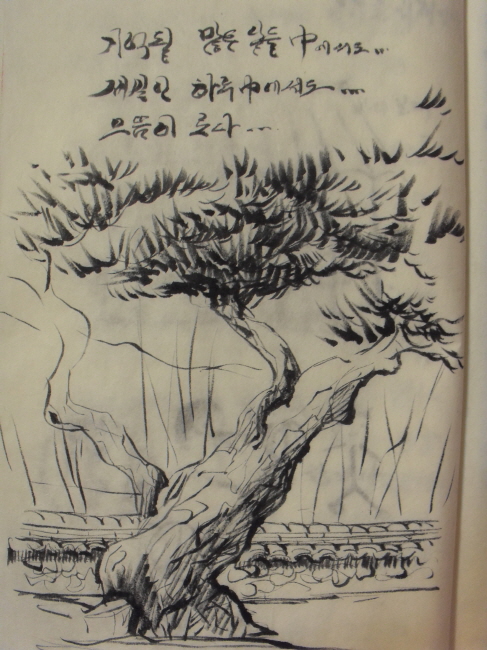 기억될 많은 일들 中에서도...
개꿈인 하루 中에서도...
으뜸이 로다...